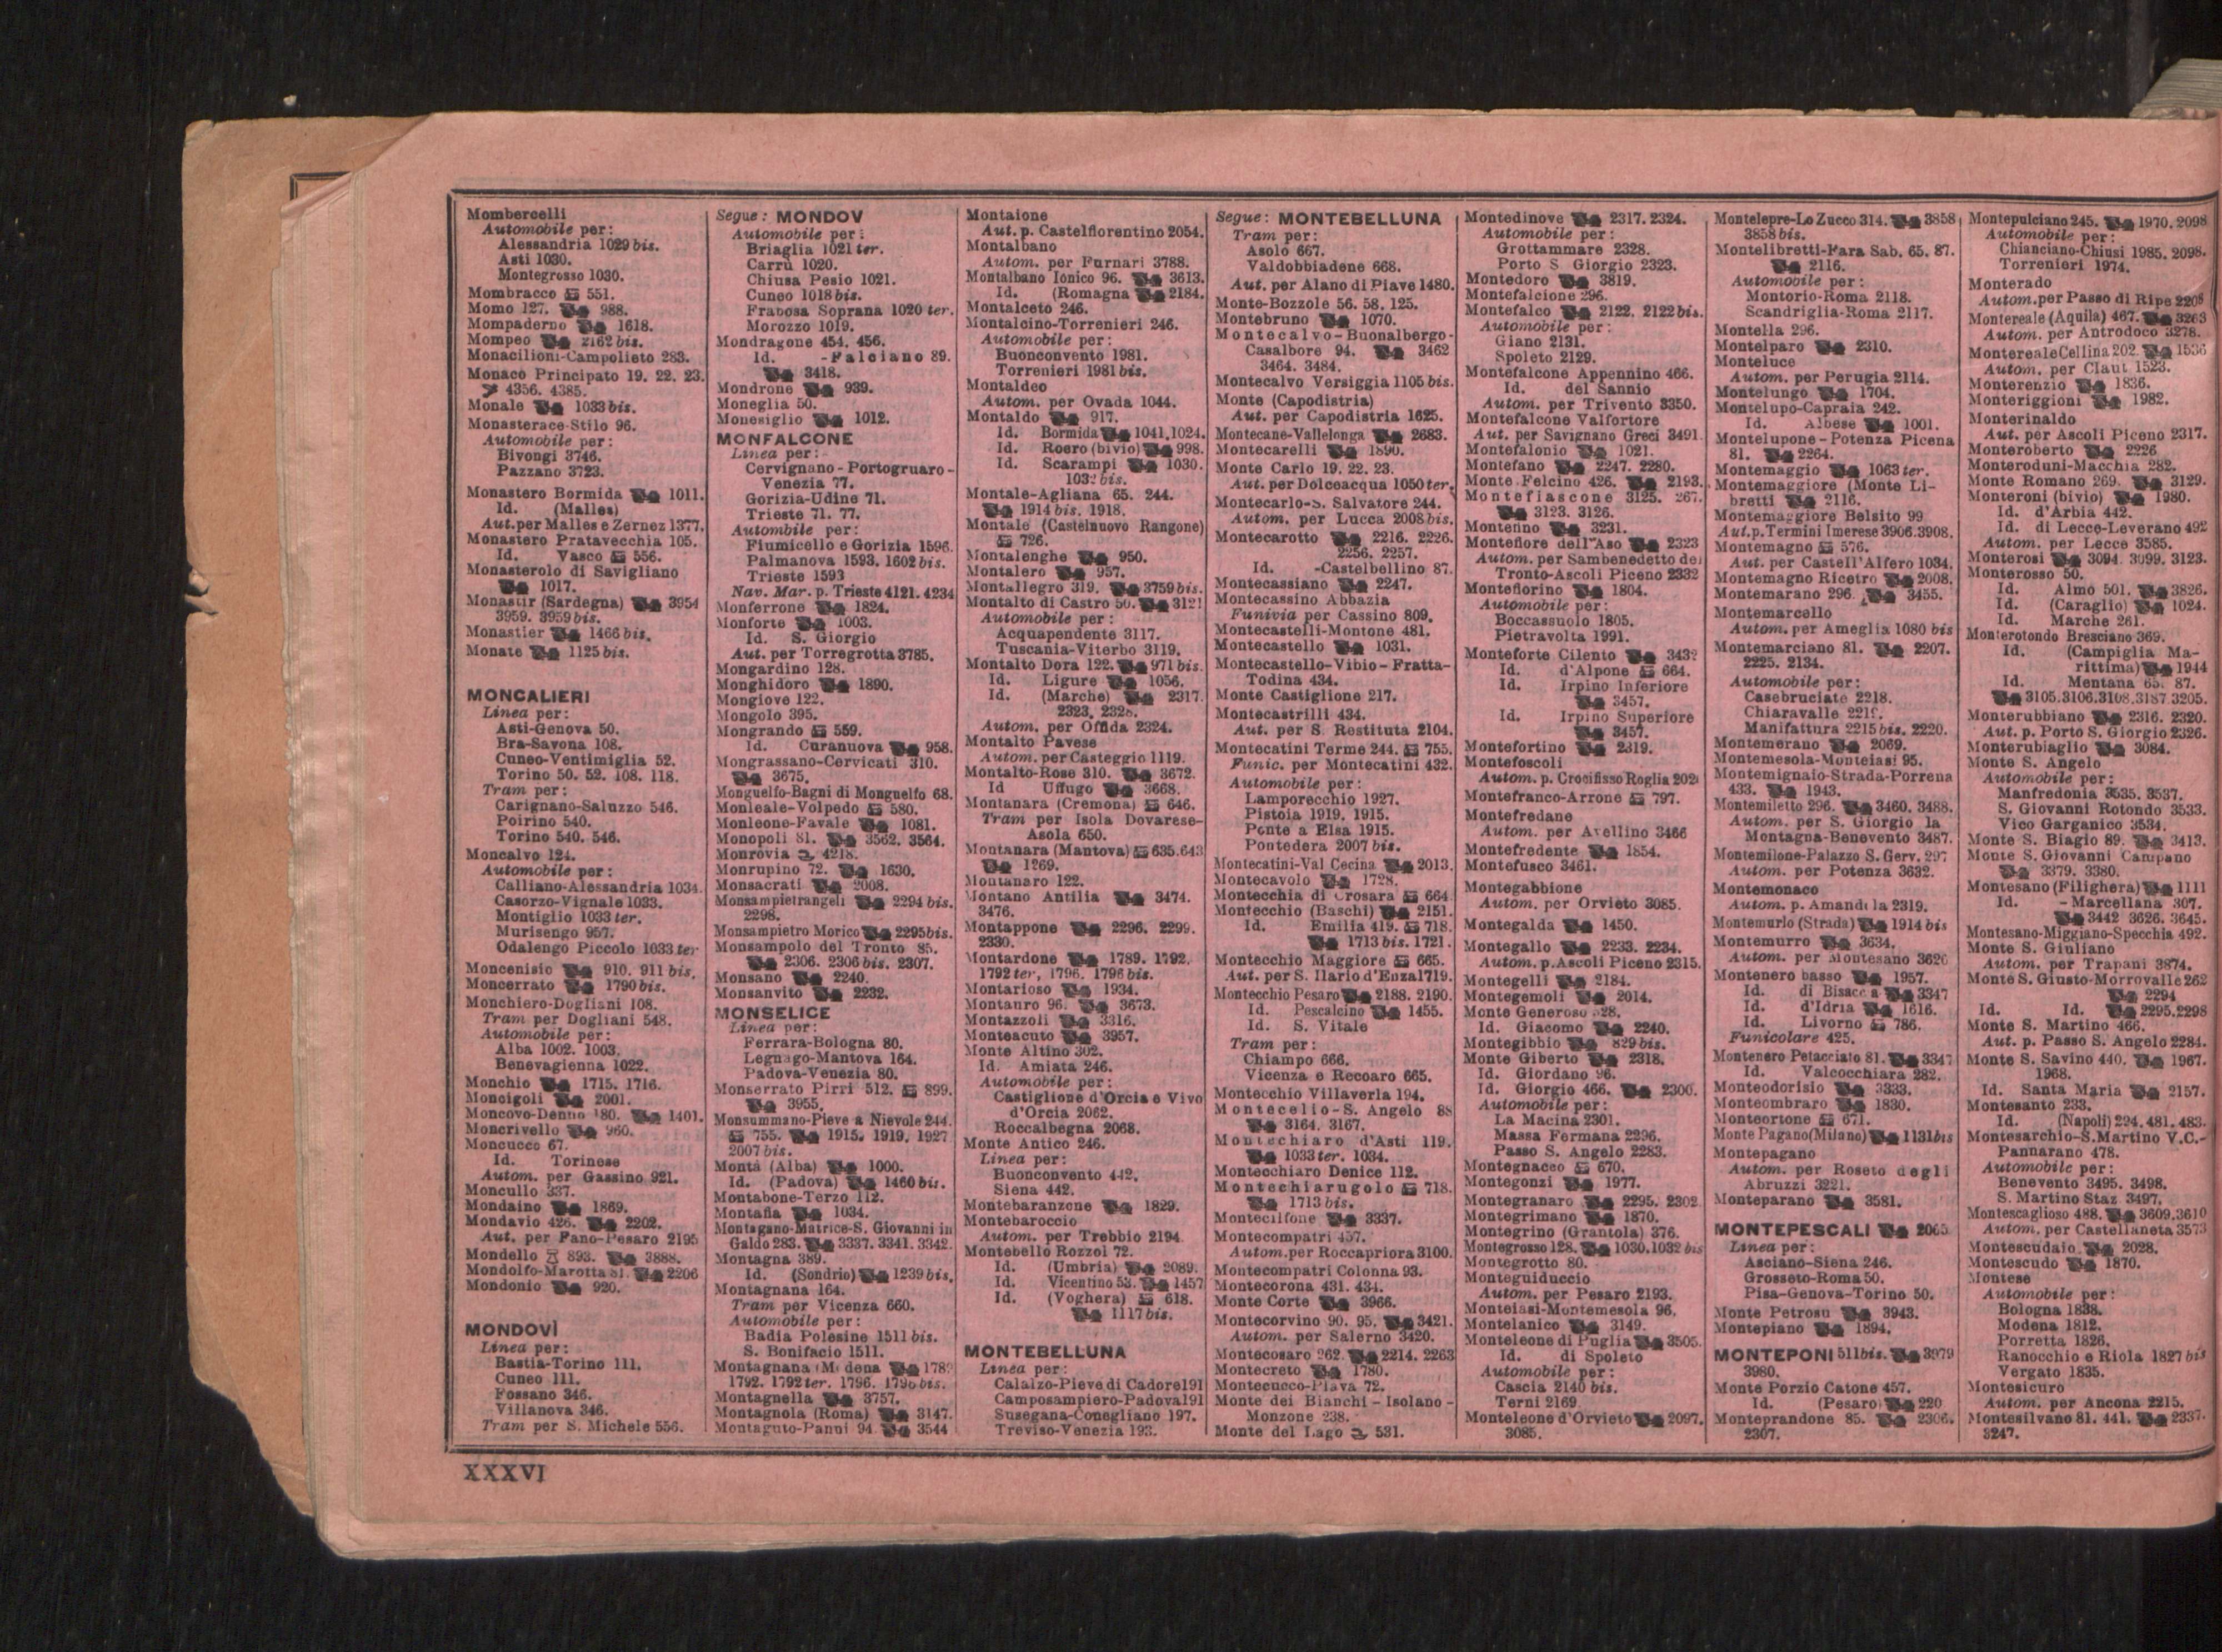 Mombercelli
Automobile per:
Alessandria 1029 bis.
Asti 1030.
Montegrosso 1030.
Mombracco 551.
Momo 127. 988.
Mompaderno 1618.
Mompeo 2162 bis.
Monacilioni-Campolieto 283.
Monaco Principato 19. 22. 23.
4356. 4385.
Monale 1033 bis.
Monasterace-Stilo 96.
Automobile per:
Bivongi 3746.
Pazzano 3723.
Monastero Bormida 1011.
Id. (Malles)
Aut. per Malles e Zernez 1377.
Monastero Pratavecchia 105.
Id. Vasco 556.
Monasterolo di Savigliano
1017.
Monastir (Sardegna) 3954
3959. 3959 bis.
Monastier 1466 bis.
Monate 1125 bis.
MONCALIERI
Linea per:
Asti-Genova 50.
Bra-Savona 108.
Cuneo-Ventimiglia 52.
Torino 50. 52. 108. 118.
Tram per:
Carignano-Saluzzo 546.
Poirino 540.
Torino 540. 546.
Moncalvo 124.
Automobile per:
Calliano-Alessandria 1034.
Casorzo-Vignale 1033.
Montiglio 1033 ter.
Murisengo 957.
Odalengo Piccolo 1033 ter
Moncenisio 910. 911 bis.
Moncerrato 1790 bis.
Monchiero-Dogliani 108.
Tram per Dogliani 548.
Automobile per:
Alba 1002. 1003.
Benevagienna 1022.
Monchio 1715. 1716.
Moncigoli 2001.
Moncovo-Denno 180. 1401.
Moncrivello 960.
Moncucco 67.
Id. Torinese
Autom. per Gassino 921.
Moncullo 337.
Mondaino 1869.
Mondavio 426. 2202.
Aut. per Fano-Pesaro 2195
Mondello 893. 3888.
Mondolfo-Marotta 81. 2206
Mondonio 920.
MONDOVÌ
Linea per:
Bastia-Torino 111.
Cuneo 111.
Fossano 346.
Villanova 346.
Tram per S. Michele 556.
Segue: MONDOV
Automobile per:
Briaglia 1021 ter.
Carrù 1020.
Chiusa Pesio 1021.
Cuneo 1018 bis.
Frabosa Soprana 1020 ter.
Morozzo 1019.
Mondragone 454. 456.
Id. -Falciano 89.
3418.
Mondrone 939.
Moneglia 50.
Monesiglio 1012.
MONFALCONE
Linea per:
Cervignano-Portogruaro-
Venezia 77.
Gorizia-Udine 71.
Trieste 71. 77.
Autombile per:
Fiumicello e Gorizia 1596.
Palmanova 1593. 1602 bis.
Trieste 1593
Nav. Mar. p. Trieste 4121. 4234
Monferrone 1824.
Monforte 1003.
Id. S. Giorgio
Aut. per Torregrotta 3785.
Mongardino 128.
Monghidoro 1890.
Mongiove 122.
Mongolo 395.
Mongrando 559.
Id. Curanuova 958.
Mongrassano-Cervicati 310.
3675.
Monguelfo-Bagni di Monguelfo 68.
Monleale-Volpedo 580.
Monleone-Favale 1081.
Monopoli 81. 3562. 3564.
Monrovia 4218.
Monrupino 72. 1630.
Monsacrati 2008.
Monsampietrangeli 2294 bis.
2298.
Monsampietro Morico 2295 bis.
Monsampolo del Tronto 85.
2306. 2306 bis. 2307.
Monsano 2240.
Monsanvito 2232.
MONSELICE
Linea per:
Ferrara-Bologna 80.
Legnago-Mantova 164.
Padova-Venezia 80.
Monserrato Pirri 512. 899.
3955.
Monsummano-Pieve a Nievole 244.
755. 1915. 1919. 1927
2007 bis.
Montà (Alba) 1000.
Id. (Padova) 1460 bis.
Montabone-Terzo 112.
Montafia 1034.
Montagano-Matrice-S. Giovanni in
Galdo 283. 3337. 3341. 3342.
Montagna 389.
Id. (Sondrio) 1239 bis.
Montagnana 164.
Tram per Vicenza 660.
Automobile per:
Badia Polesine 1511 bis.
S. Bonifacio 1511.
Montagnana
1792. 1792 ter. 1796. 1796 bis.
Montagnella 3757.
Montagnola (Roma) 3147.
Montaguto-Panni 94. 3544
Montaione
Aut. p. Castelfiorentino 2054.
Montalbano
Autom. per Furnari 3788.
Montalbano Ionico 96. 3613.
Id. (Romagna 2184.
Montalceto 246.
Montalcino-Torrenieri 246.
Automobile per:
Buonconvento 1981.
Torrenieri 1981 bis.
Montaldeo
Autom. per Ovada 1044.
Montaldo 917.
Id. Bormida 1041. 1024.
Id. Roero (bivio) 998.
Id. Scarampi 1030.
1032 bis.
Montale-Agliana 65. 244.
1914 bis. 1918.
Montale (Castelnuovo Rangone)
726.
Montalenghe 950.
Montalero 957.
Montallegro 319. 3759 bis.
Montalto di Castro 50. 3121
Automobile per:
Acquapendente 3117.
Tuscania-Viterbo 3119.
Montalto Dora 122. 971 bis.
Id. Ligure 1056.
Id. (Marche) 2317.
2323. 2328.
Autom. per Offida 2324.
Montalto Pavese
Autom. per Casteggio 1119.
Montalto-Rose 310. 3672.
Id Uffugo 3668.
Montanara (Cremona) 646.
Tram per Isola Dovarese-
Asola 650.
Montanara (Mantova) 635. 643
1269.
Montanaro 122.
Montano Antilia 3474.
3476.
Montappone 2296. 2299.
2330.
Montardone 1789. 1792.
1792 ter. 1796. 1796 bis.
Montarioso 1934.
Montauro 96. 3673.
Montazzoli 3316.
Monteacuto 3957.
Monte Altino 302.
Id. Amiata 246.
Automobile per:
Castiglione d'Orcia e Vivo
d'Orcia 2062.
Roccalbegna 2068.
Monte Antico 246.
Linea per:
Buonconvento 442.
Siena 442.
Montebaranzone 1829.
Montebaroccio
Autom. per Trebbio 2194.
Montebello Rozzol 72.
Id. (Umbria) 2089.
Id. Vicentino 53. 1457
Id. (Voghera) 618.
1117 bis.
MONTEBELLUNA
Linea per:
Calalzo-Pieve di Cadore 191
Camposampiero-Padova 191
Susegana-Conegliano 197.
Treviso-Venezia 193.
Segue: MONTEBELLUNA
Tram per:
Asolo 667.
Valdobbiadene 668.
Aut. per Alano di Piave 1480.
Monte-Bozzole 56. 58. 125.
Montebruno 1070.
Montecalvo-Buonalbergo-
Casalbore 94. 3462
3464. 3484.
Montecalvo Versiggia 1105 bis.
Monte (Capodistria)
Aut. per Capodistria 1625.
Montecane-Vallelonga 2683.
Montecarelli 1890.
Monte Carlo 19. 22. 23.
Aut. per Dolceacqua 1050 ter.
Montecarlo-S. Salvatore 244.
Autom. per Lucca 2008 bis.
Montecarotto 2216. 2226.
2256. 2257.
Id. -Castelbellino 87.
Montecassiano 2247.
Montecassino Abbazia
Funivia per Cassino 809.
Montecastelli-Montone 481.
Montecastello 1031.
Montecastello-Vibio-Fratta-
Todina 434.
Monte Castiglione 217.
Montecastrilli 434.
Aut. per S. Restituta 2104.
Montecatini Terme 244. 755.
Funic. per Montecatini 432.
Automobile per:
Lamporecchio 1927.
Pistoia 1919. 1915.
Ponte a Elsa 1915.
Pontedera 2007 bis.
Montecatini-Val Cecina 2013.
Montecavolo 1728.
Montecchia di Crosara 664
Montecchio (Baschi) 2151.
Id. Emilia 419. 718.
1713 bis. 1721.
Montecchio Maggiore 665.
Aut. per S. Ilario d'Enza 1719.
Montecchio Pesaro 2188. 2190.
Id. Pescalcino 1455.
Id. S. Vitale
Tram per:
Chiampo 666.
Vicenza e Recoaro 665.
Montecchio Villaverla 194.
Montecelio-S. Angelo 88
3164. 3167.
Montechiaro d'Asti 119.
1033 ter. 1034.
Montecchiaro Denice 112.
Montechiarugolo 718.
1713 bis.
Montecilfone 3337.
Montecompatri 457.
Autom. per Roccapriora 3100.
Montecompatri Colonna 93.
Montecorona 431. 434.
Monte Corte 3966.
Montecorvino 90. 95. 3421.
Autom. per Salerno 3420.
Montecosaro 262. 2214. 2263
Montecreto 1780.
Montecucco-Plava 72.
Monte dei Bianchi-Isolano-
Monzone 238.
Monte del Lago 531.
Montedinove 2317. 2324.
Automobile per:
Grottammare 2328.
Porto S. Giorgio 2323.
Montedoro 3819.
Montefalcione 296.
Montefalco 2122. 2122 bis.
Automobile per:
Giano 2131.
Spoleto 2129.
Montefalcone Appennino 466.
Id. del Sannio
Autom. per Trivento 3350.
Montefalcone Valfortore
Aut. per Savignano Greci 3491.
Montefalonio 1021.
Montefano 2247. 2280.
Monte Felcino 426. 2193.
Montefiascone 3125. 267.
3123. 3126.
Montefino 3231.
Montefiore dell'Aso 2323
Autom. per Sambenedetto del
Tronto-Ascoli Piceno 2332
Montefiorino 1804.
Automobile per:
Boccassuolo 1805.
Pietravolta 1991.
Monteforte Cilento 3432
Id. d'Alpone 664.
Id. Irpino Inferiore
3457.
Id. Irpino Superiore
3457.
Montefortino 2319.
Montefoscoli
Autom. p. Crocifisso Roglia 202
Montefranco-Arrone 797.
Montefredane
Autom. per Avellino 3466
Montefredente 1854.
Montefusco 3461.
Montegabbione
Autom. per Orvieto 3085.
Montegalda 1450.
Montegallo 2233. 2234.
Autom. p. Ascoli Piceno 2315.
Montegelli 2184.
Montegemoli 2014.
Monte Generoso 528.
Id. Giacomo 2240.
Montegibbio 829 bis.
Monte Giberto 2318.
Id. Giordano 96.
Id. Giorgio 466. 2300.
Automobile per:
La Macina 2301.
Massa Fermana 2296.
Passo S. Angelo 2283.
Montegnacco 670.
Montegonzi 1977.
Montegranaro 2295. 2302
Montegrimano 1870.
Montegrino (Grantola) 376.
Montegrosso 128. 1030. 1032 bis
Montegrotto 80.
Monteguiduccio
Autom. per Pesaro 2193.
Monteiasi-Montemesola 96.
Montelanico 3149.
Monteleone di Puglia 3505.
Id. di Spoleto
Automobile per:
Cascia 2140 bis.
Terni 2169.
Monteleone d'Orvieto 2097.
3085.
Montelepre-Lo Zucco 314. 3858
3858 bis.
Montelibretti-Fara Sab. 65. 87.
2116.
Automobile per:
Montorio-Roma 2118.
Scandriglia-Roma 2117.
Montella 296.
Montelparo 2310.
Monteluce
Autom. per Perugia 2114.
Montelungo 1704.
Montelupo-Capraia 242.
Id. Albese 1001.
Montelupone-Potenza Picena
81. 2264.
Montemaggio 1063 ter.
Montemaggiore (Monte Li-
bretti 2116.
Montemaggiore Belsito 99
Aut. p. Termini Imerese 3906. 3908.
Montemagno 576.
Aut. per Castell'Alfero 1034.
Montemagno Ricetro 2008.
Montemarano 296. 3455.
Montemarcello
Autom. per Ameglia 1080 bis
Montemarciano 81. 2207.
2225. 2134.
Automobile per:
Casebruciate 2218.
Chiaravalle 2219.
Manifattura 2215 bis. 2220.
Montemerano 2069.
Montemesola-Monteiasi 95.
Montemignaio-Strada-Porrena
433. 1943.
Montemiletto 296. 3460. 3488.
Autom. per S. Giorgio la
Montagna-Benevento 3487.
Montemilone-Palazzo S. Gerv. 297
Autom. per Potenza 3632.
Montemonaco
Autom. p. Amandola 2319.
Montemurlo (Strada) 1914 bis
Montemurro 3634.
Autom. per Montesano 3626
Montenero basso 1957.
Id. di Bisaccia 3347
Id. d'Idria 1616.
Id. Livorno 786.
Funicolare 425.
Montenero Petacciato 81. 3347
Id. Valcocchiara 282.
Monteodorisio 3333.
Monteombraro 1830.
Monteortone 671.
Monte Pagano (Milano) 1131 bis
Montepagano
Autom. per Roseto degli
Abruzzi 3221.
Monteparano 3581.
MONTEPESCALI 2065
Linea per:
Asciano-Siena 246.
Grosseto-Roma 50.
Pisa-Genova-Torino 50.
Monte Petrosu 3943.
Montepiano 1894.
MONTEPONI 511 bis. 3979
3980.
Monte Porzio Catone 457.
Id. (Pesaro) 220
Monteprandone 85. 2306.
2307.
Montepulciano 245. 1970. 2098
Automobile per:
Chianciano-Chiusi 1985. 2098.
Torrenieri 1974.
Monterado
Autom. per Passo di Ripe 2208
Montereale (Aquila) 467. 3263
Autom. per Antrodoco 3278.
Montereale Cellina 202. 1536
Autom. per Claut 1523.
Monterenzio 1836.
Monteriggioni 1982.
Monterinaldo
Aut. per Ascoli Piceno 2317.
Monteroberto 2226
Monteroduni-Macchia 282.
Monte Romano 269. 3129.
Monteroni (bivio) 1980.
Id. d'Arbia 442.
Id. di Lecce-Leverano 492
Autom. per Lecce 3585.
Monterosi 3094. 3099. 3123.
Monterosso 50.
Id. Almo 501. 3826.
Id. (Caraglio) 1024.
Id. Marche 261.
Monterotondo Bresciano 369.
Id. (Campiglia Ma-
rittima) 1944
Id. Mentana 65. 87.
3105. 3106. 3108. 3187. 3205.
Monterubbiano 2316. 2320.
Aut. p. Porto S. Giorgio 2326.
Monterubiaglio 3084.
Monte S. Angelo
Automobile per:
Manfredonia 3535. 3537.
S. Giovanni Rotondo 3533.
Vico Garganico 3534.
Monte S. Biagio 89. 3413.
Monte S. Giovanni Campano
3379. 3380.
Montesano (Filighera) 1111
Id. - Marcellana 307.
3442 3626. 3645.
Montesano-Miggiano-Specchia 492.
Monte S. Giuliano
Autom. per Trapani 3874.
Monte S. Giusto-Morrovalle 262
2294
Id. Id. 2295. 2298
Monte S. Martino 466.
Aut. p. Passo S. Angelo 2284.
Monte S. Savino 440. 1967.
1968.
Id. Santa Maria 2157.
Montesanto 233.
Id. (Napoli) 294. 481. 483.
Montesarchio-S. Martino V.C.-
Pannarano 478.
Automobile per:
Benevento 3495. 3498.
S. Martino Staz. 3497.
Montescaglioso 488. 3609. 3610
Autom. per Castellaneta 3573
Montescudaio 2028.
Montescudo 1870.
Montese
Automobile per:
Bologna 1838.
Modena 1812.
Porretta 1826.
Ranocchio e Riola 1827 bis
Vergato 1835.
Montesicuro
Autom. per Ancona 2215.
Montesilvano 81. 441. 2337.
3247.
XXXVI